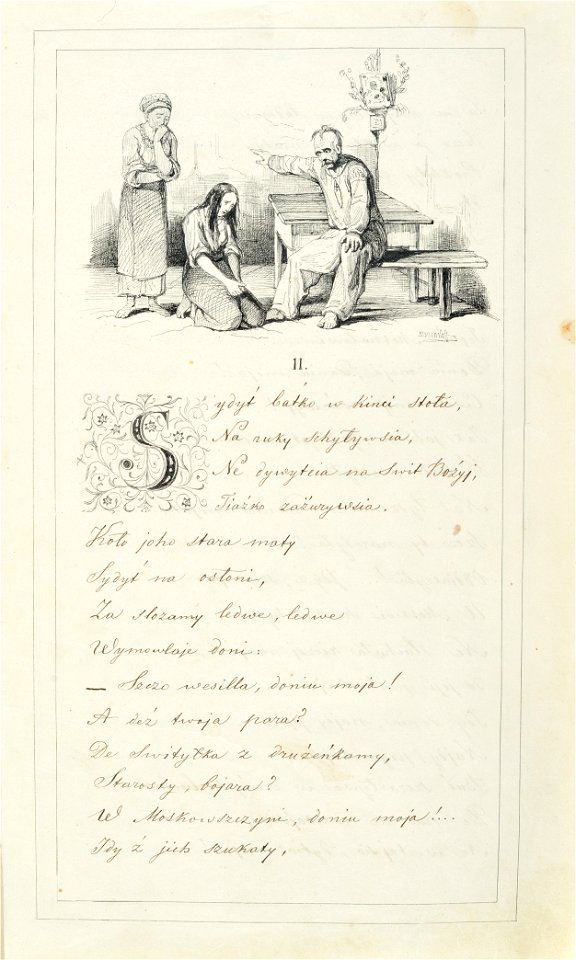 II.
Sydyt' bat'ko w kinci stoła,
Na ruky schyływsia,
Ne dywytcia na swit Bożyj,
Tiażko zażurywsia.
Koło joho stara maty
Sydyt' na osłoni,
Za slozamy ledwe, ledwe
Wymowlaje doni:
— Szczo wesilla, doniu moja!
A deż twoja para?
De Swityłka z drużeńkamy,
Starosty, bojara?
W Moskowszczyni, doniu moja!...
Idy ż jich szukaty,